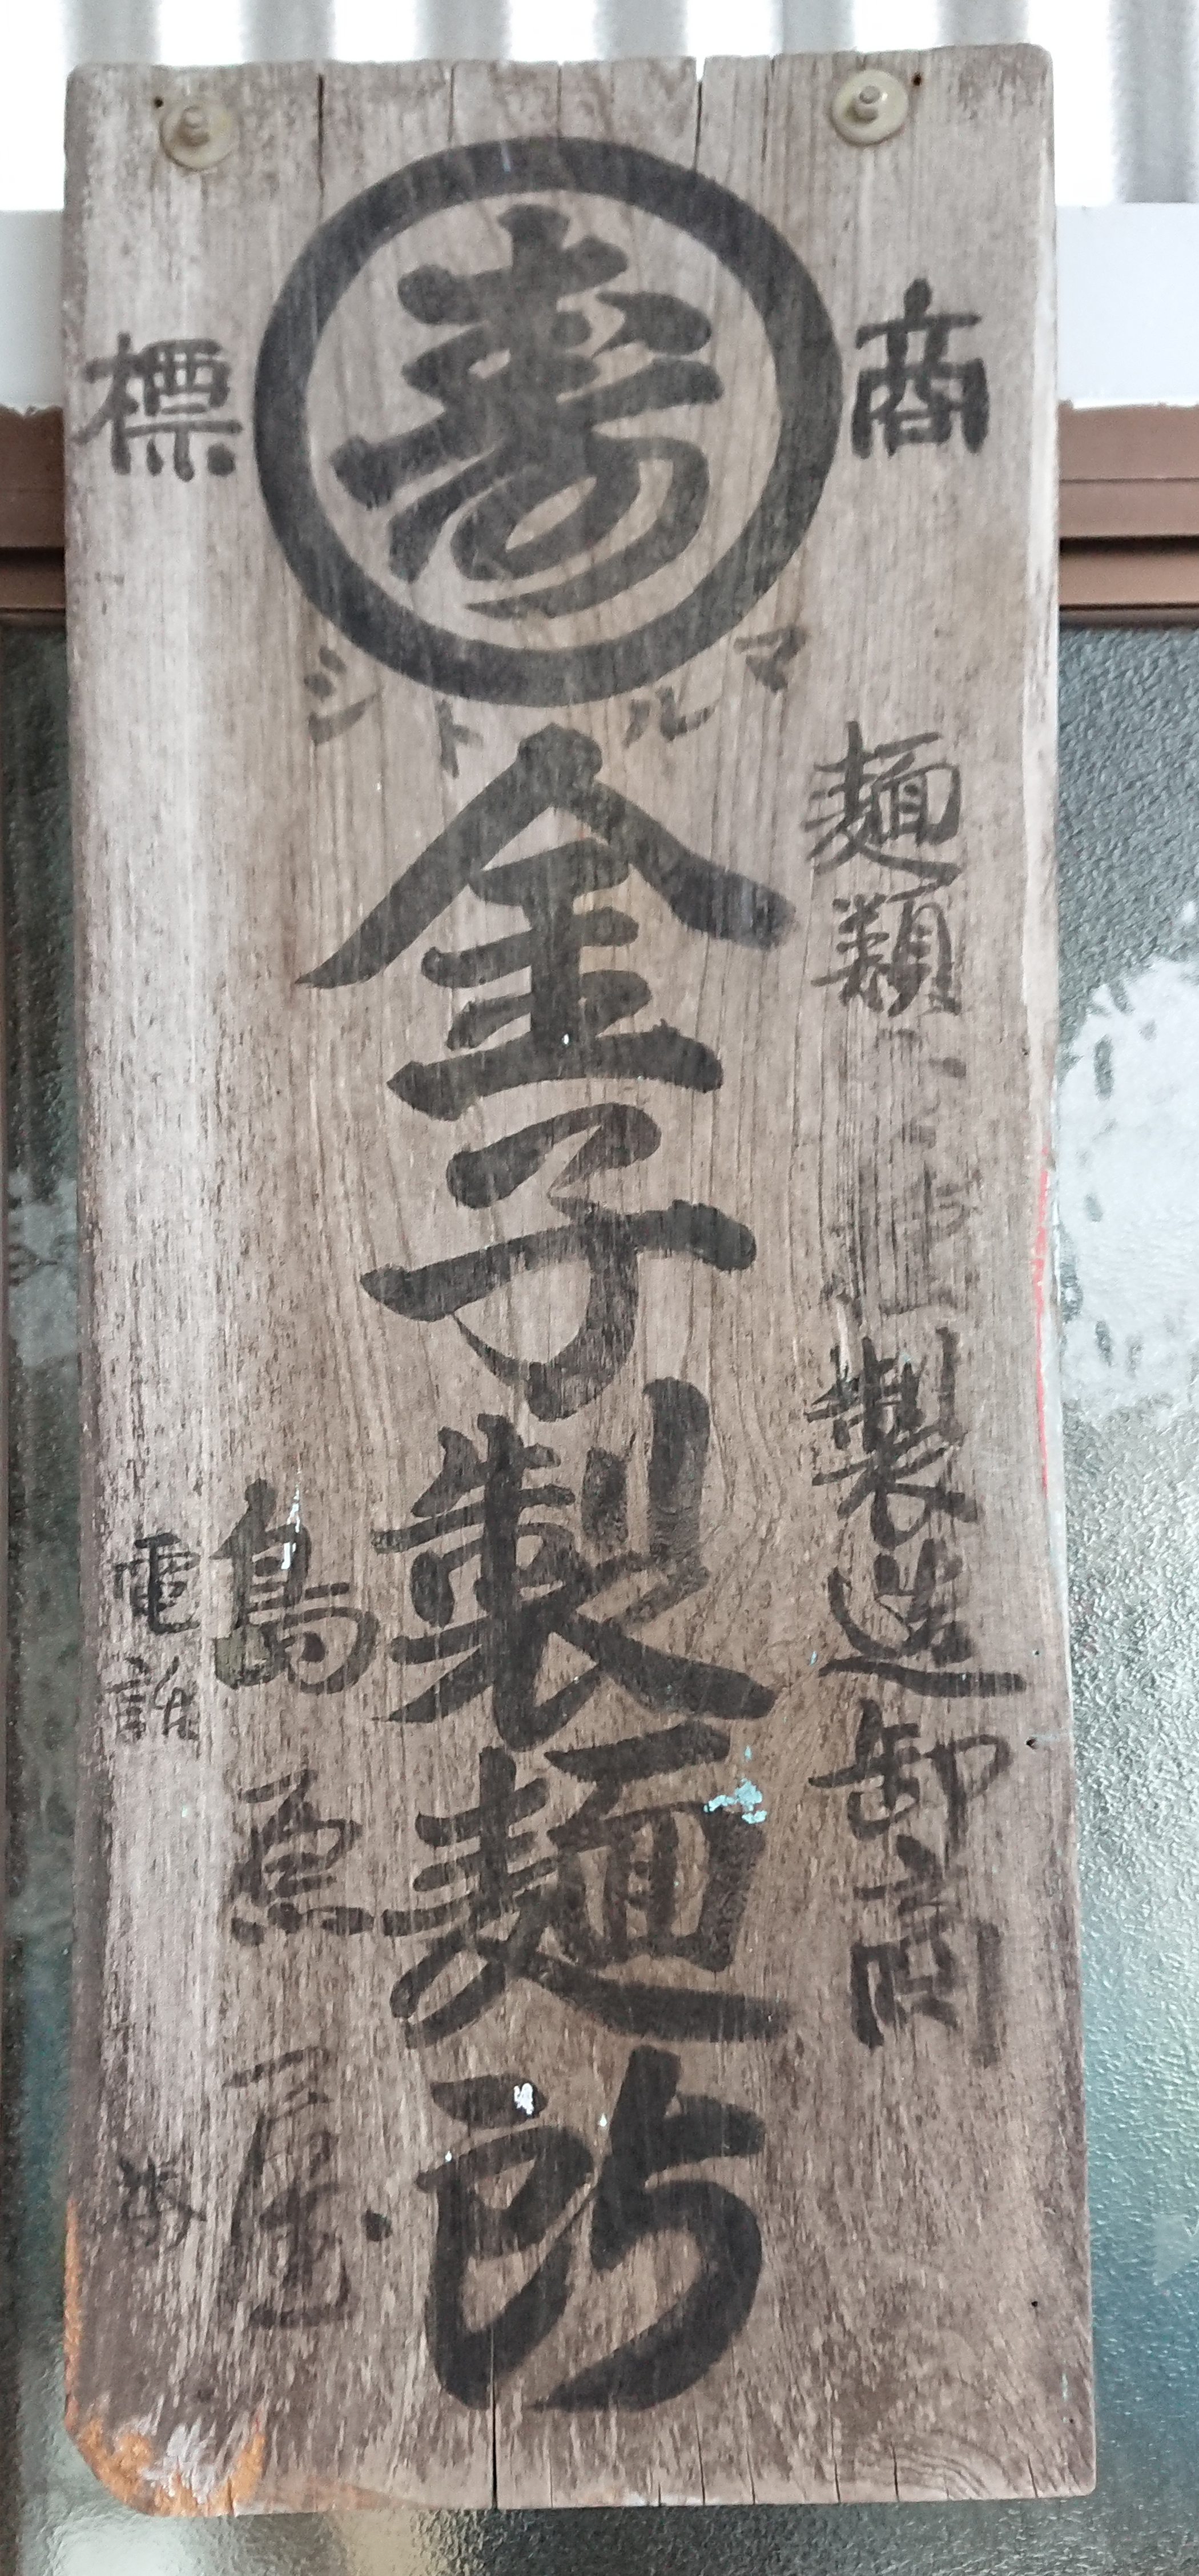 商標
寿
マルトシ
麺類
製造卸商
金子製麺所
島原
電話